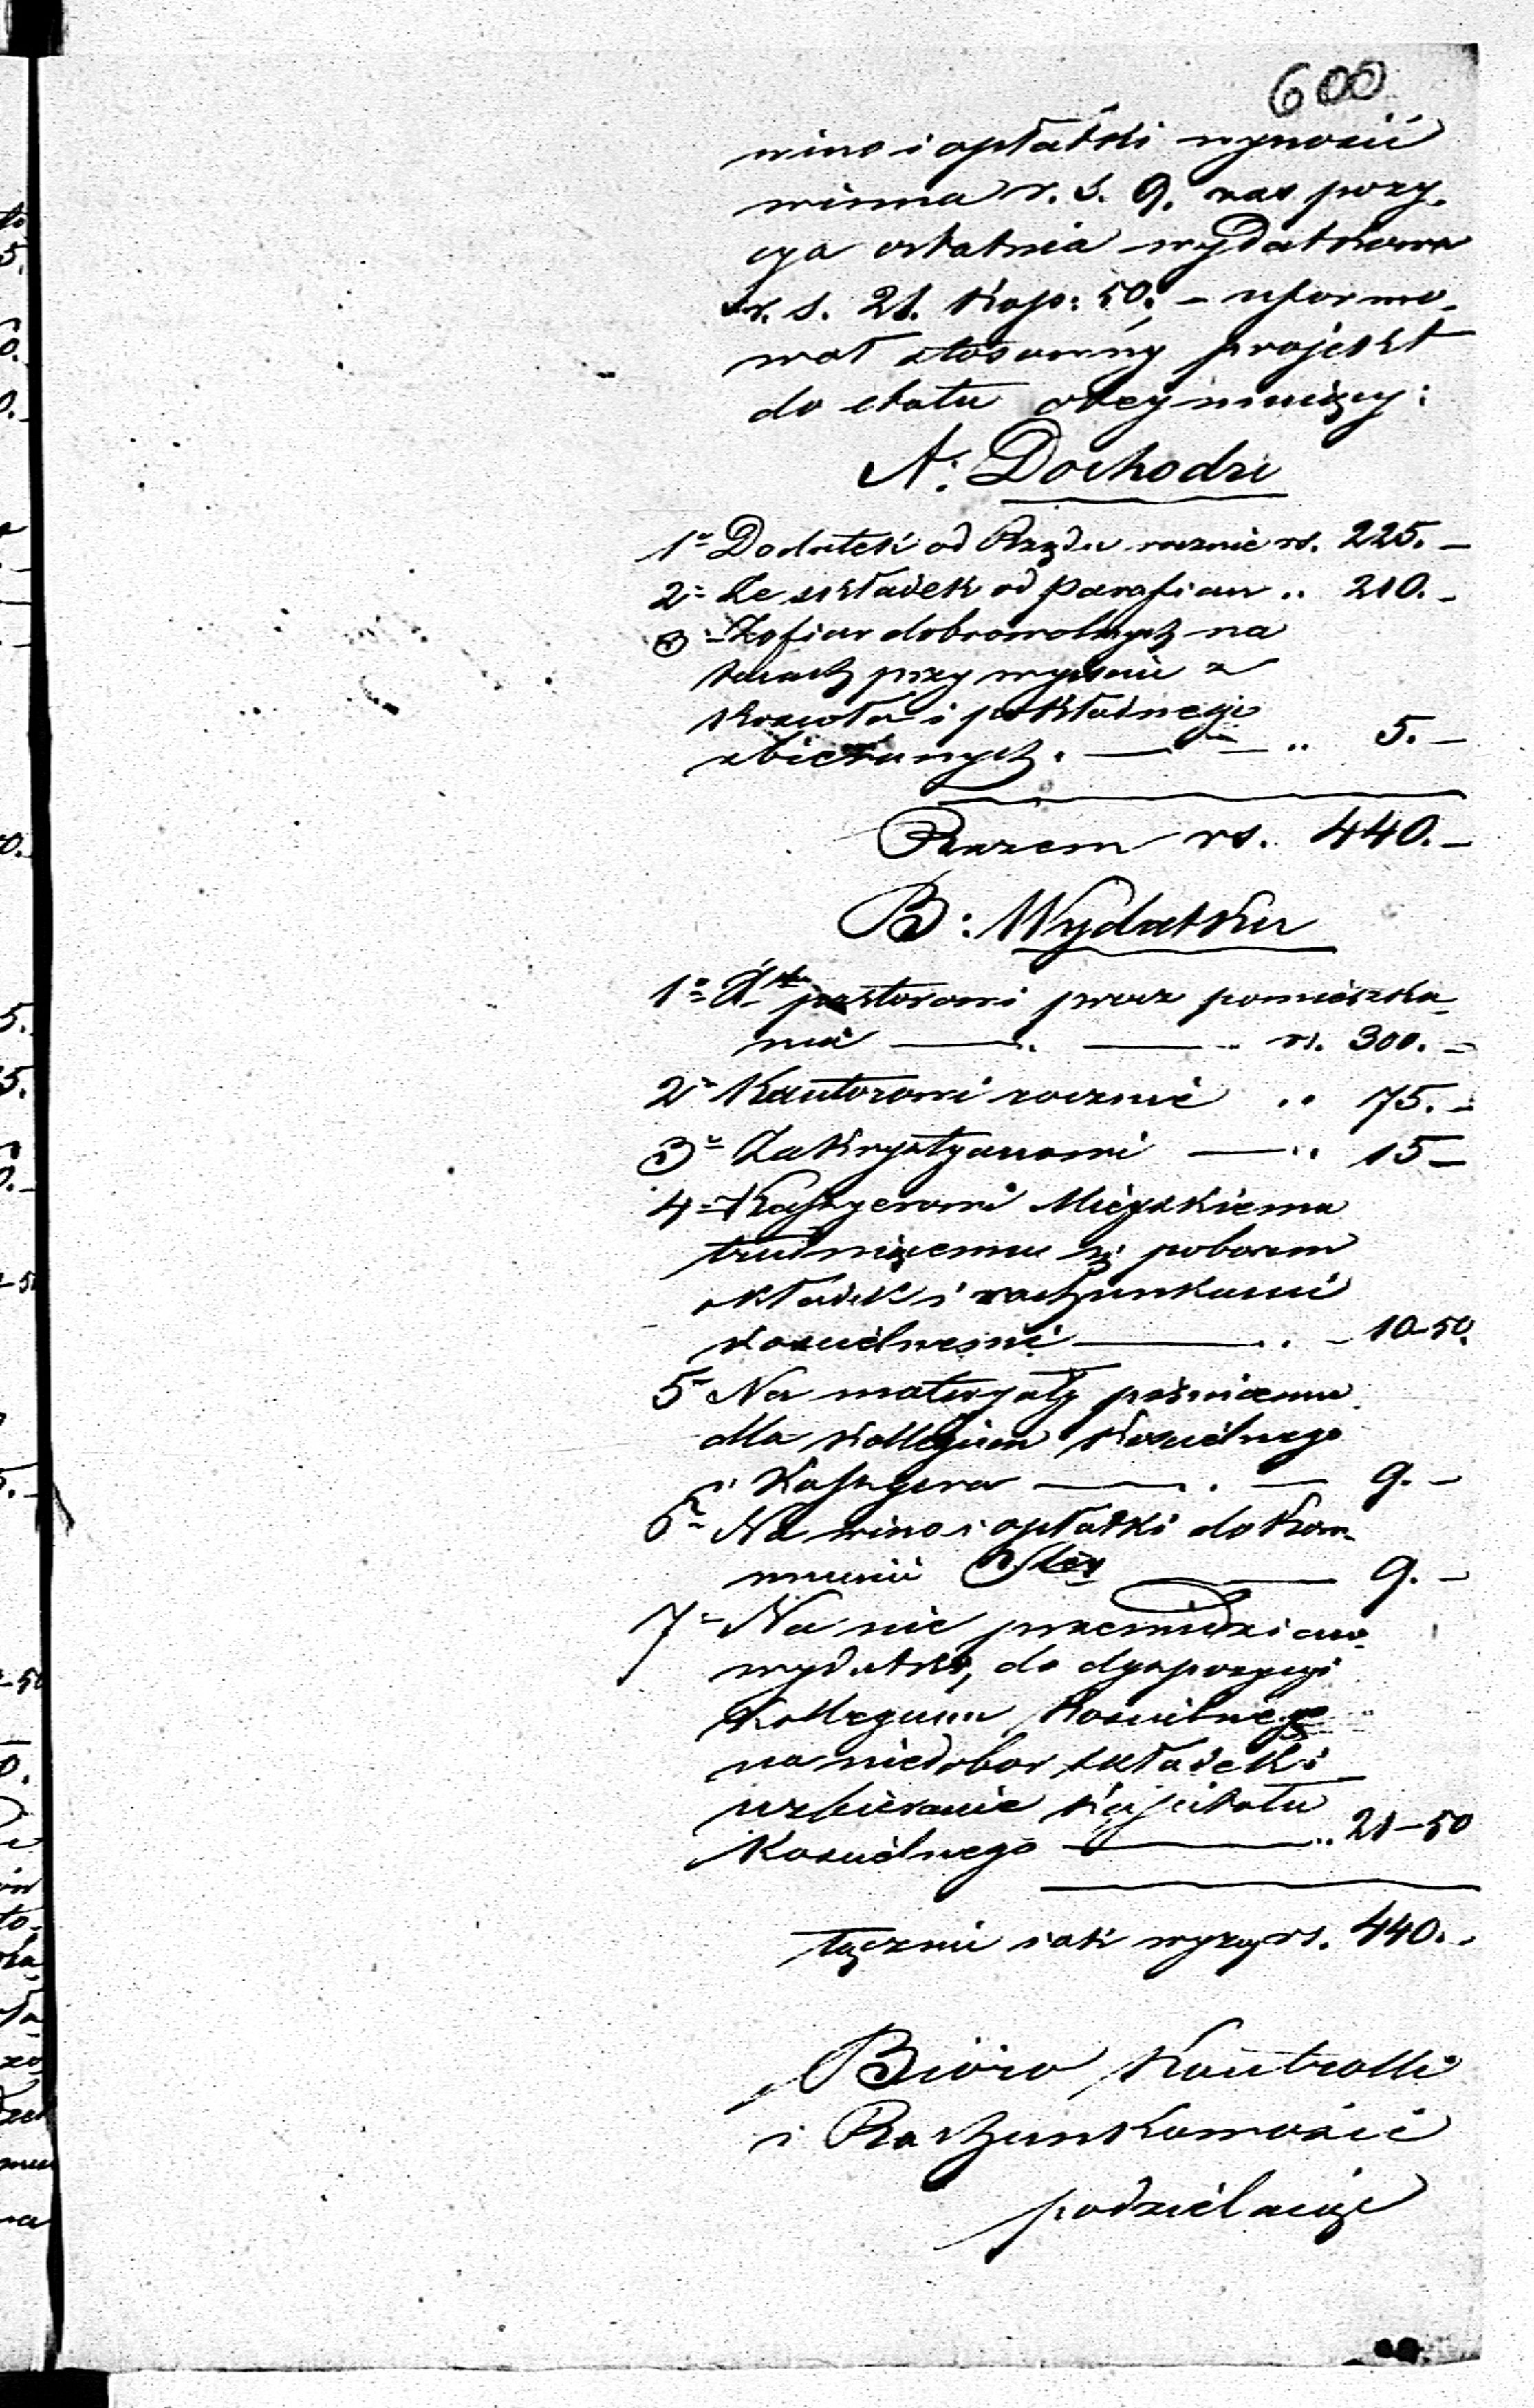 600
wino i opłatki wynosić
winna r. s. 9. zaś pozy-
cya ostatnia wydatkowa
r. s. 21. kop: 50. – uformo-
wał stosowny projekt
do etatu obeymuiący:
A: Dochodu
1o Dodatek od Rządu rocznie rs. 225. –
2o Ze składek od parafian .. 210. –
3o Z ofiar dobrowolnych na
tacach przy wyiściu z
Kościoła i pokładnego
zbieranych. — — .. 5. –
Razem rs. 440. –
B: Wydatku
1o X. pastorowi prócz pomieszka-
nia — .. — .. rs. 300. –
2o Kantorowi rocznie .. 75. –
3o Zakrystyanowi — .. 15 –
4o Kassyerowi Mieyskiemu
trudniącemu się poborem
składek i rachunkami
kościelnemi — . – 10–50.
5o Na materyały piśmienne
dla Kollegium Kościelnego
i Kassyera — . — 9. –
6o Na wino i opłatki do Kom-
munii — 9. –
7o Na nie przewidziane
wydatki, do dyspozycyi
Kollegium Kościelnego
na niedobor składek i
uzbieranie kapitału
Kościelnego — .. 21–50
łącznie iak wyżey rs. 440. .
Bióro Kontrolli
i Rachunkowości
podzielaiąc